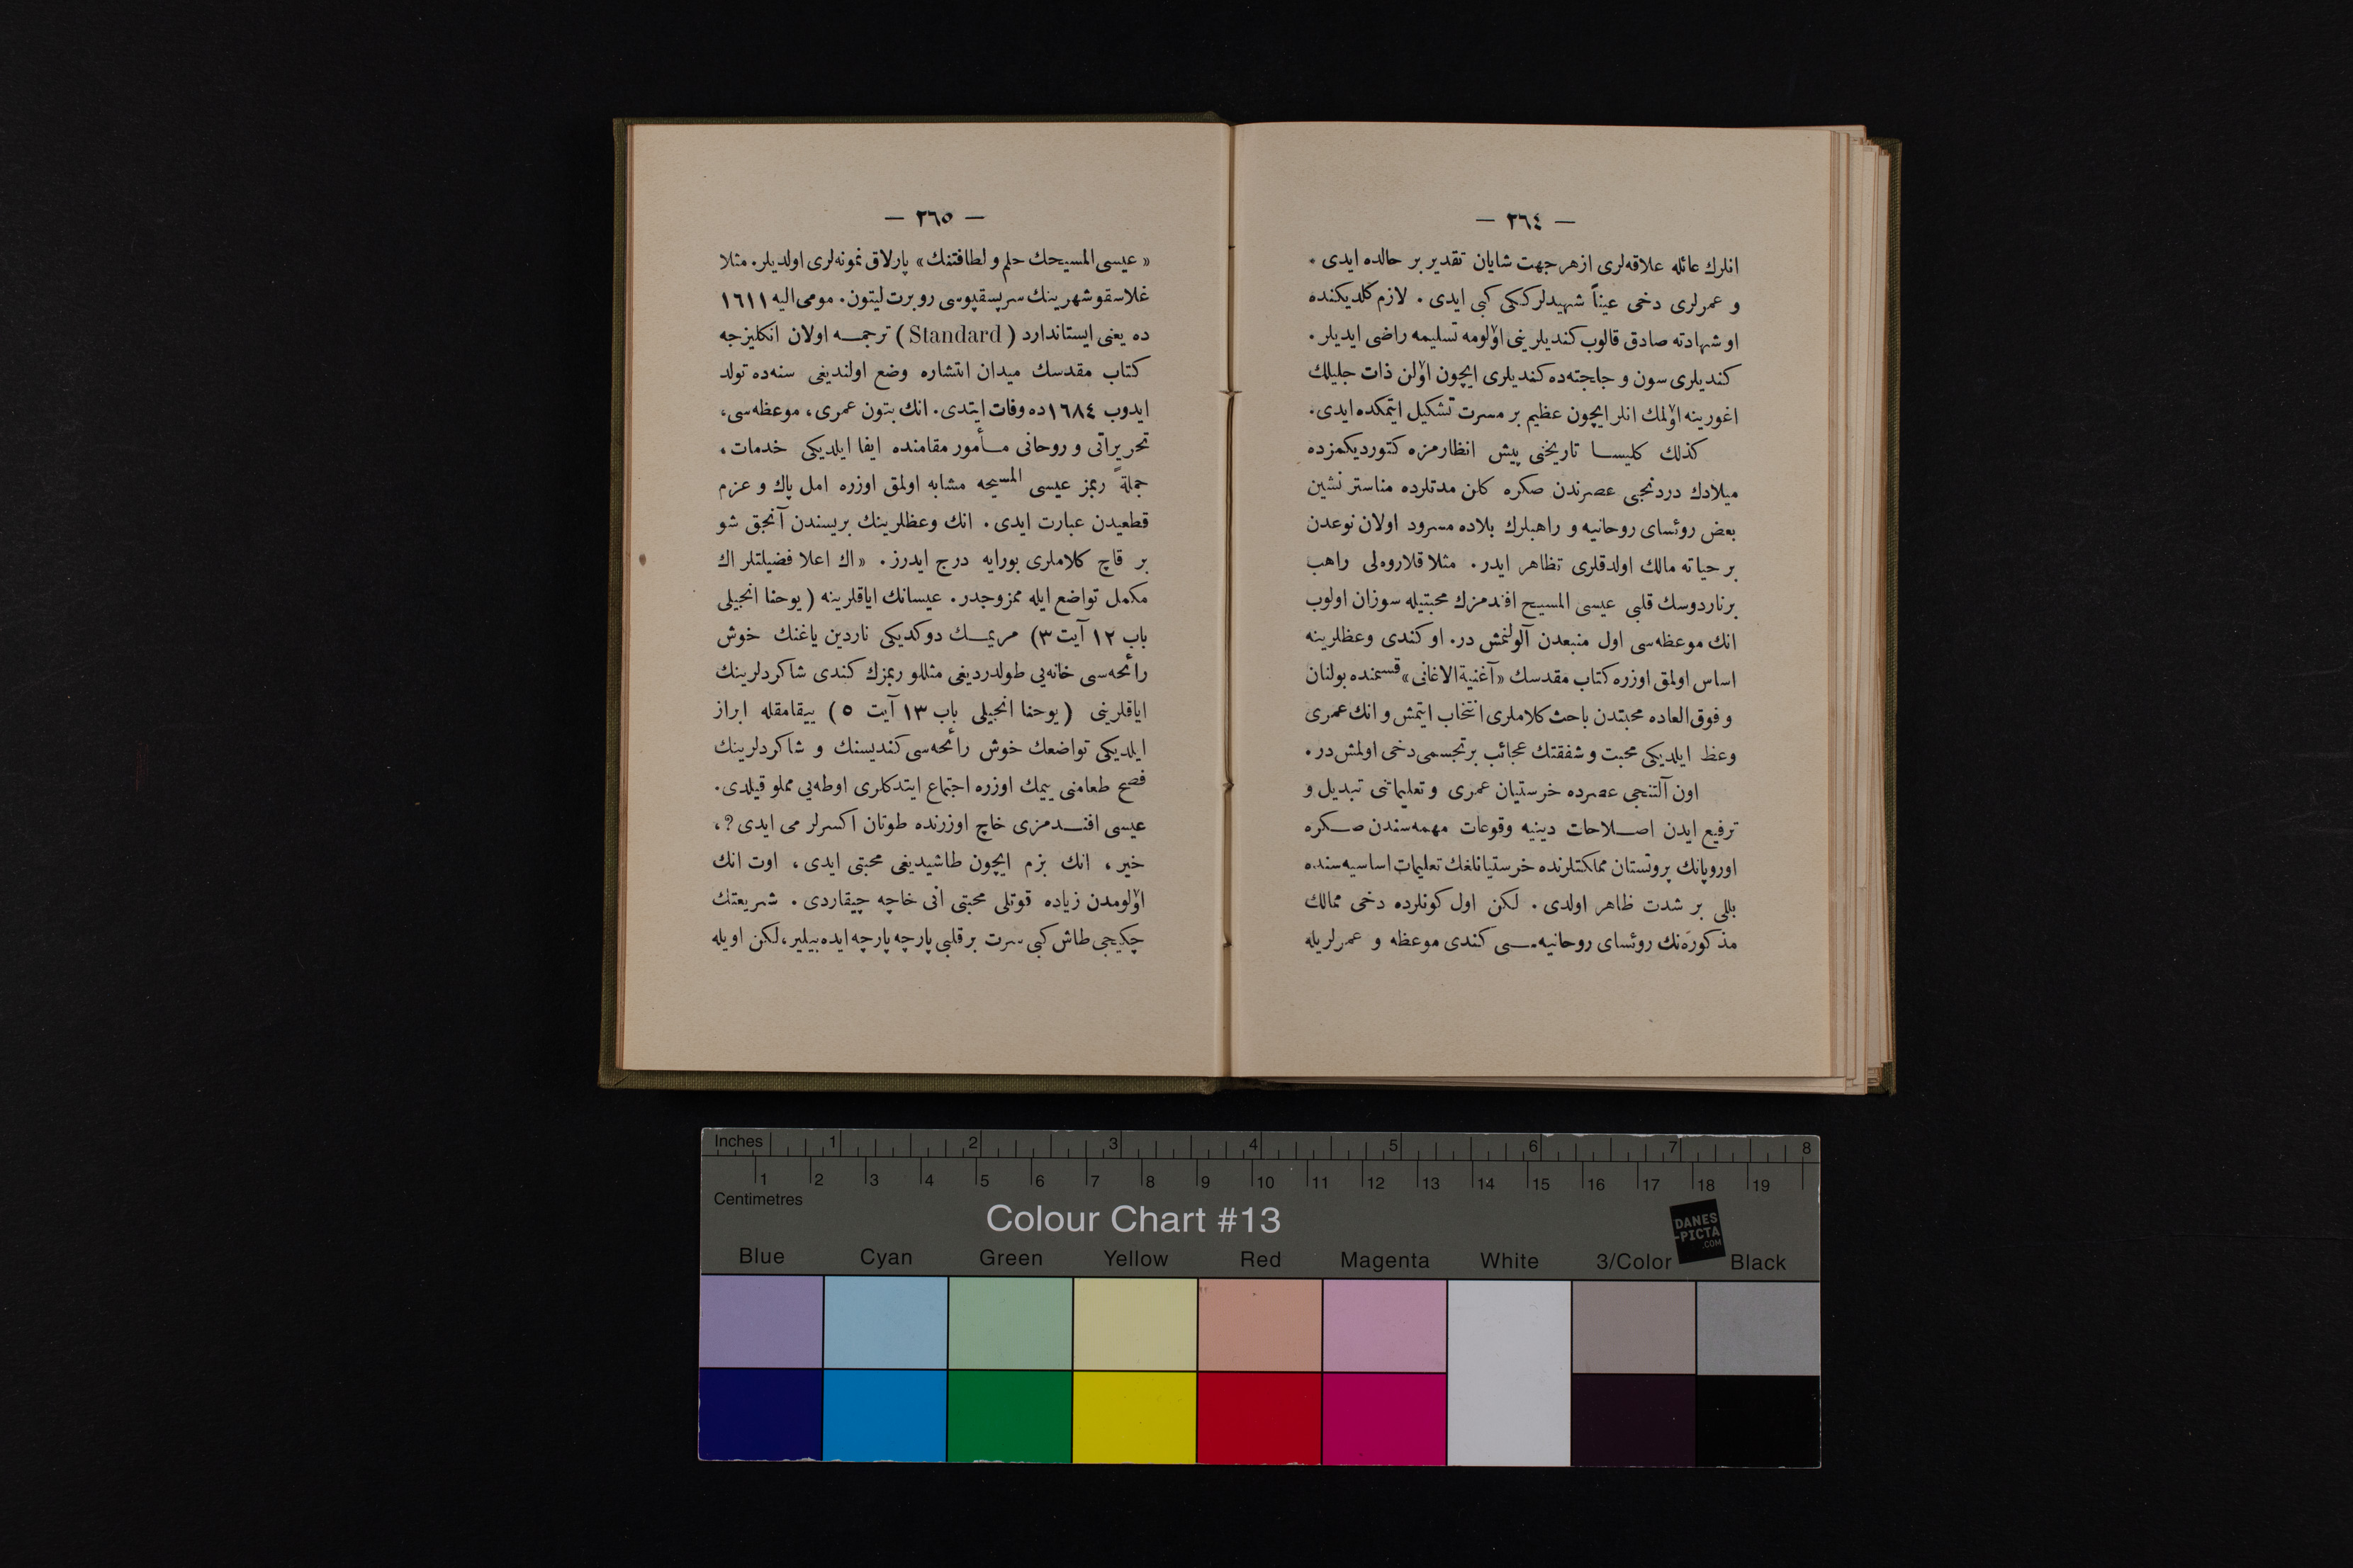 — ٢٦٤ —
انلرك عائله علاقه‌لری ازهرجهت شایان تقدیر بر حالده ایدی .
و عمرلری دخی عیناً شهیدلرككی كبی ایدی . لازم كلدیكنده
او شهادته صادق قالوب كندیلرینی اوٚلومه تسلیمه راضی ایدیلر .
كندیلری سون و جلجته‌ده كندیلری ایچون اوٚلن ذات جلیلك
اغورینه اوٚلمك انلر ایچون عظیم بر مسرت تشكیل ایتمكده ایدی .
كذلك كلیسا تاریخنی پیش انظارمزه كتوردیكمزده
میلادك دردنجی عصرندن صكره كلن مدتلرده مناستر نشین
بعض روئسای روحانیه و راهبلرك بلاده مسرود اولان نوعدن
بر حیاته مالك اولدقلری تظاهر ایدر . مثلا قلاروه‌لی راهب
برناردوسك قلبی عیسی المسیح افندمزك محبتیله سوزان اولوب
انك موعظه‌سی اول منبعدن آلولنمش در . او كندی وعظلرینه
اساس اولمق اوزره كتاب مقدسك «آغنیة الاغانی» قسمنده بولنان
و فوق العاده محبتدن باحث كلاملری انتخاب ایتمش و انك عمری
وعظ ایلدیكی محبت و شفقتك عجائب بر تجسمی دخی اولمش در .
اون آلتنجی عصرده خرستیان عمری و تعلیماتنی تبدیل و
ترفیع ایدن اصلاحات دینیه وقوعات مهمه‌سندن صكره
اوروپانك پروتستان مملكتلرنده خرستیانلغك تعلیمات اساسیه‌سنده
بللی بر شدت ظاهر اولدی . لكن اول كونلرده دخی ممالك
مذكوره‌نك روئسای روحانیه‌سی كندی موعظه و عمرلریله
— ٢٦٥ —
« عیسی المسیحك حلم و لطافتنك » پارلاق نمونه‌لری اولدیلر . مثلا
غلاسقو شهرینك سرپسقپوسی روبرت لیتون . مومی الیه ١٦١١
ده یعنی ایستاندارد ( Standard ) ترجمه اولان انكلیزجه
كتاب مقدسك میدان انتشاره وضع اولندیغی سنه‌ده تولد
ایدوب ١٦٨٤ ده وفات ایتدی . انك بتون عمری ، موعظه‌سی ،
تحریراتی و روحانی مأمور مقامنده ایفا ایلدیكی خدمات ،
جملةً ربمز عیسی المسیحه مشابه اولمق اوزره امل پاك و عزم
قطعیدن عبارت ایدی . انك وعظلرینك بریسندن آنجق شو
بر قاچ كلاملری بورایه درج ایدرز . « اك اعلا فضیلتلر اك
مكمل تواضع ایله ممزوجدر . عیسانك ایاقلرینه ( یوحنا انجیلی
باب ١٢ آیت ٣) مریمك دوكدیكی ناردین یاغنك خوش
رائحه‌سی خانه‌یی طولدردیغی مثللو ربمزك كندی شاكردلرینك
ایاقلرینی ( یوحنا انجیلی باب ١٣ آیت ٥ ) ییقامقله ابراز
ایلدیكی تواضعك خوش رائحه‌سی كندیسنك و شاكردلرینك
فصح طعامنی ییمك اوزره اجتماع ایتدكلری اوطه‌یی مملو قیلدی .
عیسی افندمزی خاچ اوزرنده طوتان اكسرلر می ایدی ? ،
خیر ، انك بزم ایچون طاشیدیغی محبتی ایدی ، اوت انك
اوٚلومدن زیاده قوتلی محبتی انی خاچه چیقاردی . شریعتك
چكیجی طاش كبی سرت بر قلبی پارچه پارچه ایده بیلیر ، لكن اویله
Inches 1 2 3 4 5 6 7 8
1 2 3 4 5 6 7 8 9 10 11 12 13 14 15 16 17 18 19
Centimetres
Colour Chart #13
DANES
-PICTA
.COM
Blue Cyan Green Yellow Red Magenta White 3/Color Black